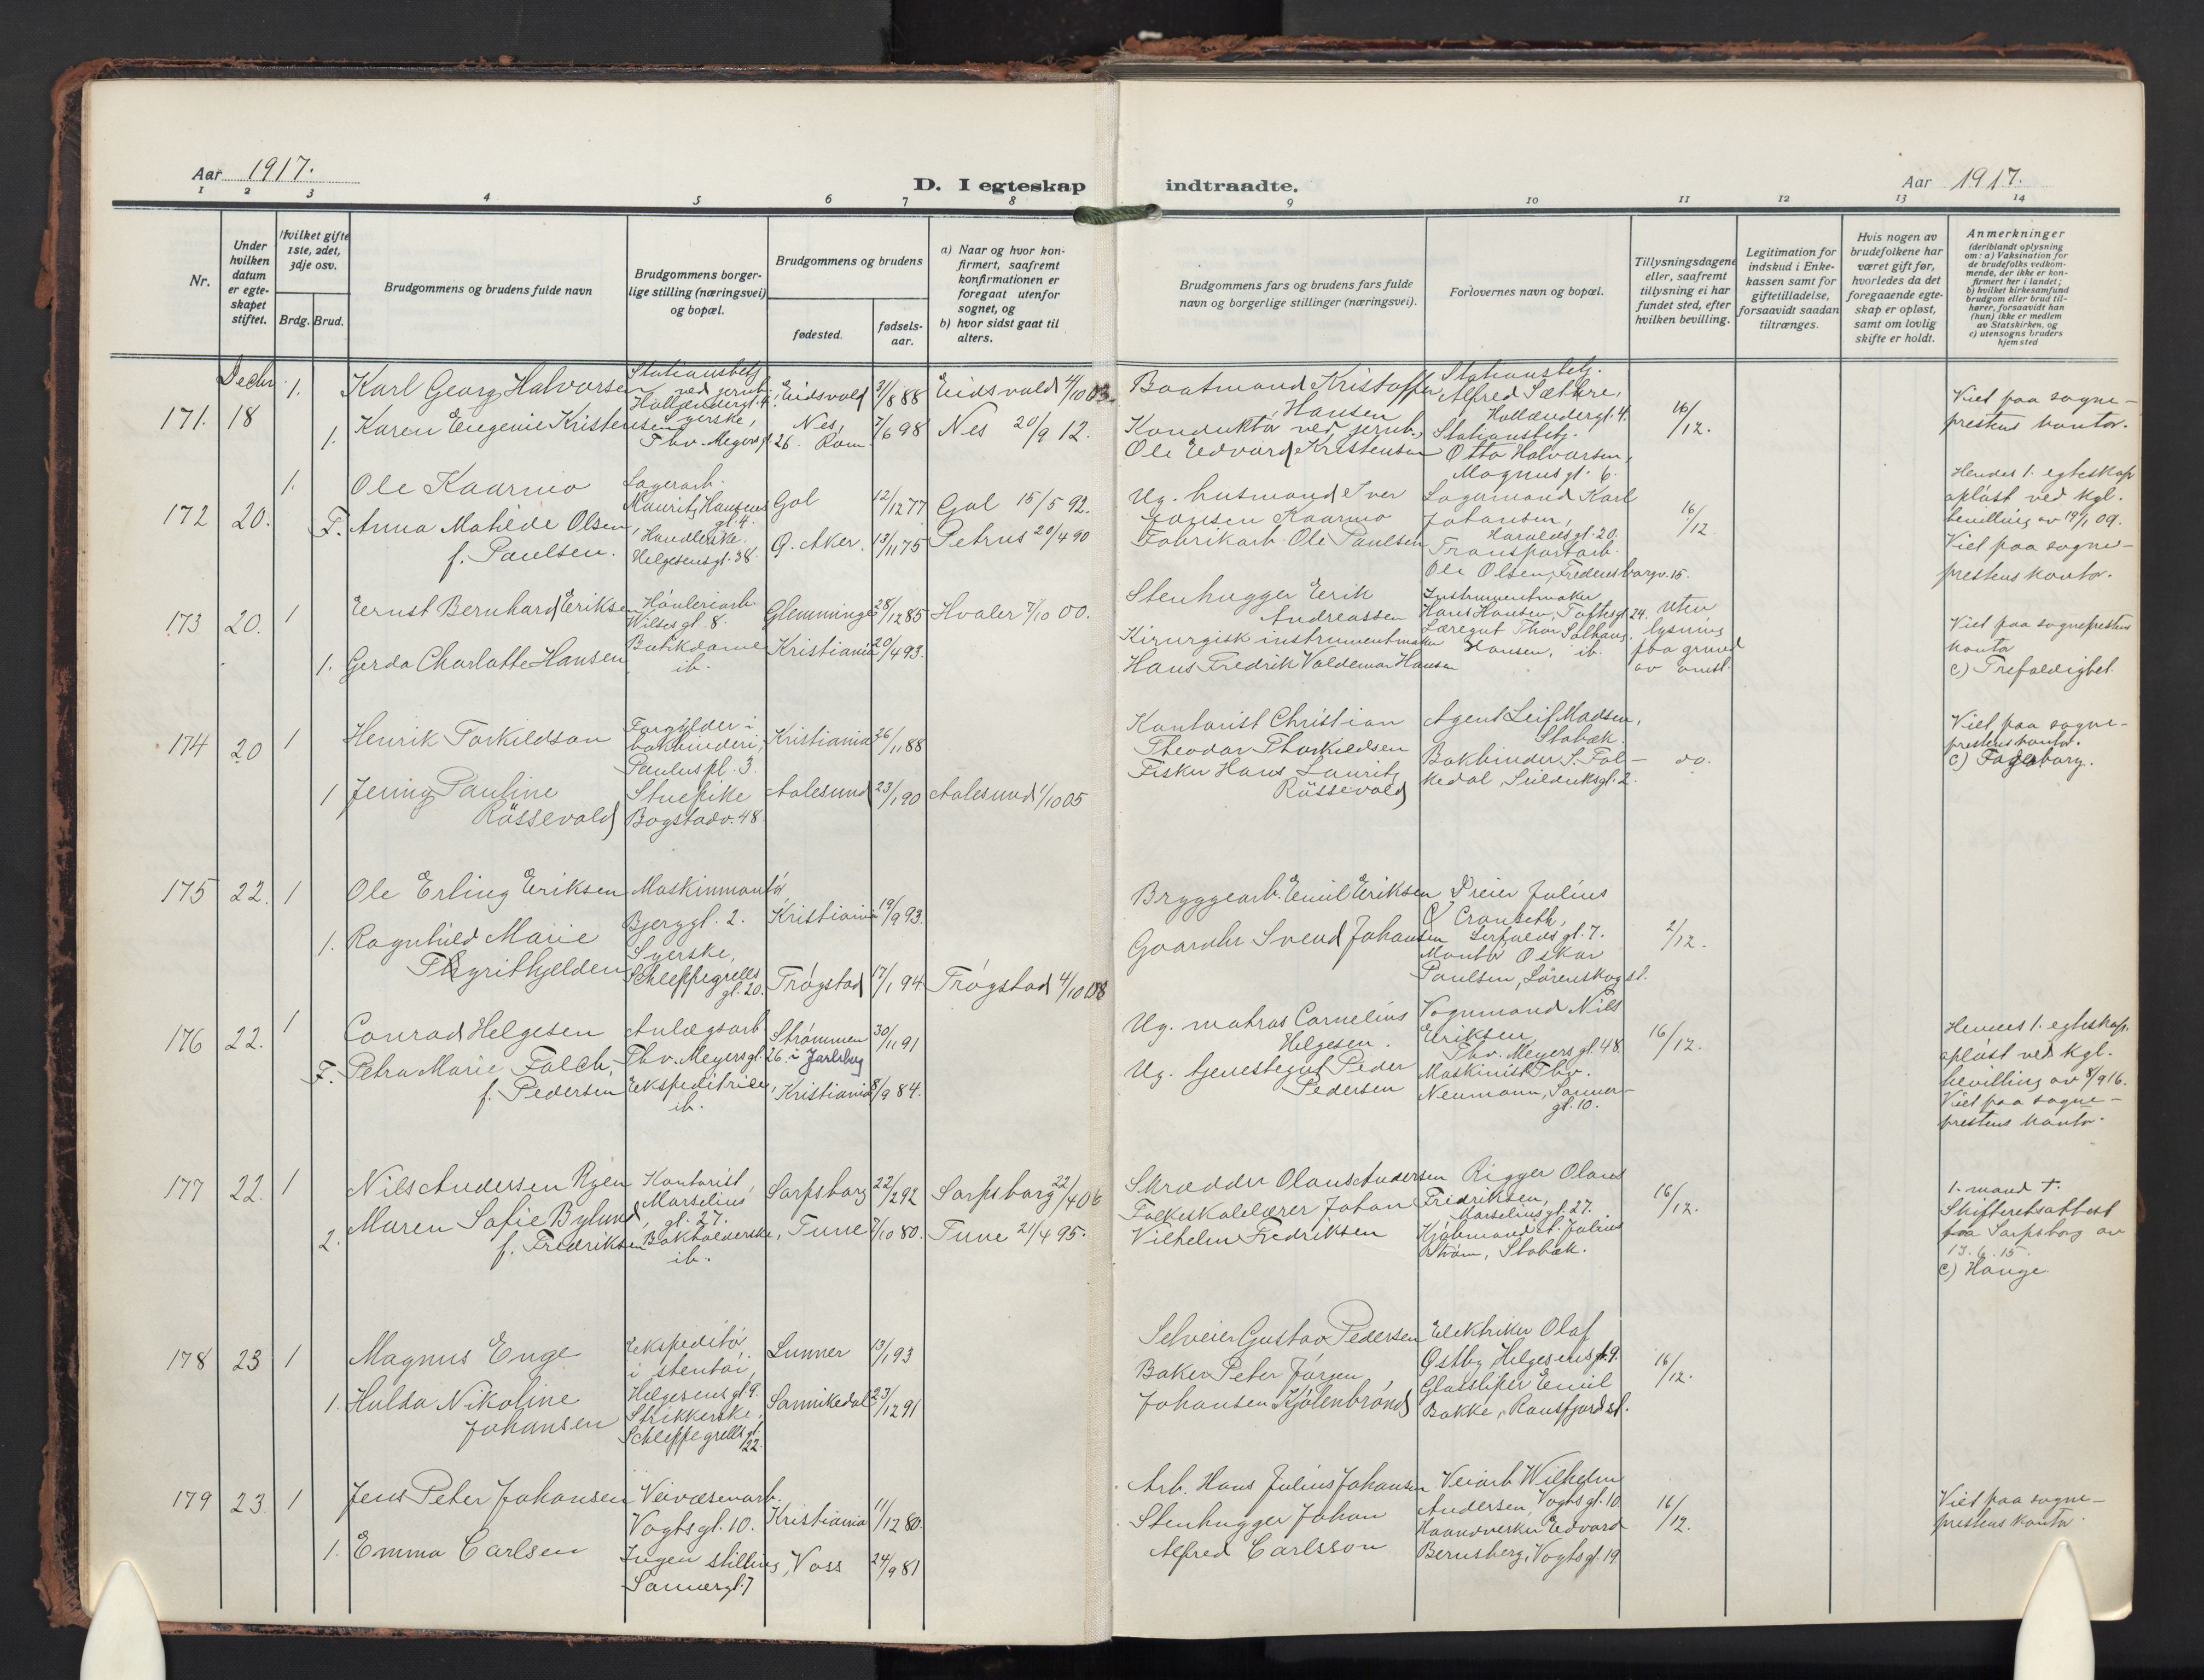 Aar 1917.
D. I egteskap indtraadte.
Aar 1917.
1 2 3 4 5 6 7 8 9 10 11 12 13 14
Nr.
Under hvilken datum er egteskapet stiftet.
Hvilket gifte 1ste, 2det, 3dje osv.
Brdg. Brud.
Brudgommens og brudens fulde navn
Brudgommens borgerlige stilling (næringsvei) og bopæl.
Brudgommens og brudens
fødested.
fødselsaar.
a) Naar og hvor konfirmert, saafremt konfirmationen er foregaat utenfor sognet, og
b) hvor sidst gaat til alters.
Brudgommens fars og brudens fars fulde navn og borgerlige stillinger (næringsvei).
Forlovernes navn og bopæl.
Tillysningsdagene eller, saafremt tillysning ei har fundet sted, efter hvilken bevilling.
Legitimation for indskud i Enkekassen samt for giftetilladelse, forsaavidt saadan tiltrænges.
Hvis nogen av brudefolkene har været gift før, hvorledes da det foregaaende egteskap er opløst, samt om lovlig skifte er holdt.
Anmerkninger
(deriblandt oplysning om: a) Vaksination for de brudefolks vedkommende, der ikke er konfirmert her i landet; b) hvilket kirkesamfund brudgom eller brud tilhører, forsaavidt han (hun) ikke er medlem av Statskirken, og c) utensogns bruders hjemsted
Decbr.
171. 18
1. Karl Georg Halvorsen
Stationsbetj. ved jernb. Hollændergt. 4.
Eidsvold 31/8 88 Eidsvold 4/10 03.
1. Karen Eugenie Kristensen
Syerske, Thv. Meyersgt. 26.
Nes, Rom. 7/6 98 Nes 20/9 12.
Baatmand Kristoffer Hansen
Konduktør ved jernb., Ole Edvard Kristensen
Stationsbetj. Alfred Sæthre, Hollændergt. 4.
Stationsbetj. Otto Halvorsen, Magnusgt. 6.
16/12.
Viet paa sogneprestens kontor.
172 20.
1. Ole Kaarmo
Lagerarb. Mauritz Hansens gt. 4.
Gol 12/12 77 Gol 15/5 92.
F. Anna Matilde Olsen, f. Paulsen.
Handlerske. Helgesensgt. 38.
Ø. Aker. 13/11 75 Petrus 20/4 90
Ug. husmand Iver Jonsen Kaarmo
Fabrikarb. Ole Paulsen
Lagermand Karl Johansen, Haraldsgt. 20.
Transportarb. Ole Olsen, Fredensborgv. 15.
16/12
Hendes 1. egteskap opløst ved kgl. bevilling av 19/1 09.
Viet paa sogneprestens kontor.
173 20.
1 Ernst Bernhard Eriksen
Høvleriarb. Wilsesgt. 8.
Glemminge 28/12 85 Hvaler 7/10 00.
1. Gerda Charlotte Hansen
Butikdame ib.
Kristiania 20/4 93.
Stenhugger Erik Andreassen
Kirurgisk instrumentmaker Hans Fredrik Valdemar Hansen
Instrumentmaker Hans Hansen, Toftesgt. 24.
Læregut Thor Solhaug Hansen, ib.
Uten lysning paa grund av omst.
Viet paa sogneprestens kontor
c) Trefoldighet.
174 20
1 Henrik Torkildson
Forgylder i bokbinderi, Pauluspl. 3.
Kristiania 26/11 88
1 Jenny Pauline Røssevold
Stuepike Bogstadv. 48.
Aalesund 23/1 90 Aalesund 1/10 05
Kontorist Christian Theodor Thorkildsen
Fisker Hans Lauritz Røssevold
Agent Leif Madsen, Stabæk.
Bokbinder S. Folkedal, Seilduksgt. 2.
do.
Viet paa sogneprestens kontor.
c) Fagerborg.
175 22.
1 Ole Erling Eriksen
Maskinmontør, Bjerggt. 2.
Kristiania 19/9 93.
1. Ragnhild Marie Thyrithjelden
Syerske, Schleppegrells gt. 20.
Trøgstad 17/1 94 Trøgstad 4/10 08
Bryggearb. Emil Eriksen
Gaardbr. Svend Johansen
Dreier Julius Cranseth, Lerfaldsgt. 7.
Montør Oskar Paulsen, Lørenskog st.
2/12.
176 22.
1 Conrad Helgesen
Anlægsarb. Thv. Meyersgt. 26.
Strømmen i Jarlsberg 30/11 91
F. Petra Marie Falch, f. Pedersen
Ekspeditrice, ib.
Kristiania 8/9 84.
Ug. matros Cornelius Helgesen.
Ug. tjenestegut Peder Pedersen
Vognmand Nils Eriksen Thv. Meyersgt. 48.
Maskinist Thv. Neumann, Sannergt. 10.
16/12.
Hennes 1. egteskap opløst ved kgl. bevilling av 8/9 16.
Viet paa sogneprestens kontor.
177 22.
1 Nils Andersen Ryen
Kontorist, Marselius gt. 27.
Sarpsborg 22/2 92 Sarpsborg 22/4 06
2. Maren Sofie Bylund, f. Fredriksen
Bokholderske, ib.
Tune 7/10 80. Tune 21/4 95.
Skrædder Olaus Andersen
Folkeskolelærer Johan Vilhelm Fredriksen
Rigger Olaus Fredriksen, Marseliusgt. 27.
Kjøbmand Julius Strøm, Stabæk.
16/12.
1. mand †. Skifteretsattest fra Sarpsborg av 13.6.15.
c) Hauge.
178 23
1 Magnus Enge
Ekspeditør i stentøi, Helgesensgt. 9.
Lunner 13/1 93
1. Hulda Nikoline Johansen
Strikkerske, Schleppegrells gt. 22.
Sannikedal 23/12 91
Selveier Gustav Pedersen
Baker Peter Jørgen Johansen Kjølenbrønd
Elektriker Olaf Østby, Helgesensgt. 9.
Glassliper Emil Bakke, Randsfjord st.
16/12.
179 23
1 Jens Peter Johansen
Veivæsenarb. Vogtsgt. 10.
Kristiania 11/12 80.
1. Emma Carlsen
Ingen stilling, Sannergt. 7
Voss 24/9 81
Arb. Hans Julius Johansen
Stenhugger Johan Alfred Carlsson
Veiarb. Wilhelm Andersen, Vogtsgt. 10.
Haandverker Edvard Bernsberg, Vogtsgt. 19.
16/12.
Viet paa sogneprestens kontor